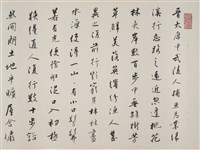 晉太原中武陵人捕魚為業緣
溪行忘路之遠近忽逢桃花
林夾岸數百步中無雜樹芳
草鮮美落英繽紛漁人甚
異之復前行欲窮其林林盡
水源便得一山山有小口髣髴
若有光便捨船從口入初極
狹纔通人復行數十步豁
然開朗土地平曠屋舍儼